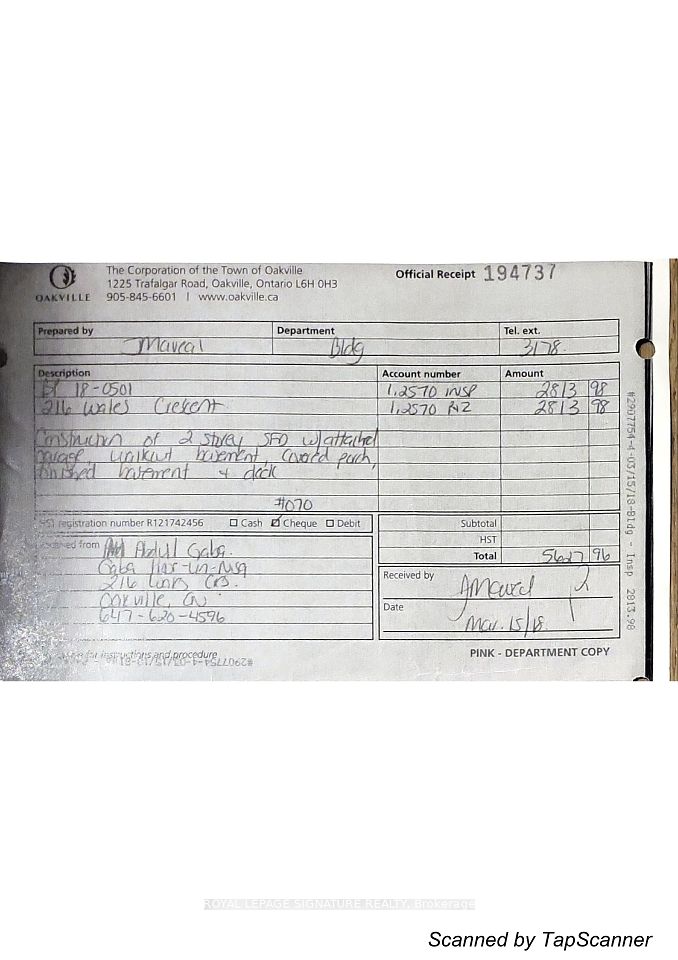 The Corporation of the Town of Oakville
1225 Trafalgar Road, Oakville, Ontario L6H 0H3
905-845-6601 | www.oakville.ca
OAKVILLE
Official Receipt 194737
Prepared by Department Tel. ext.
Bldg 3178
Description Account number Amount
BP 18-0501 1.2570 INSP 2813 98
216 Wales Crescent 1.2570 2813 98
Construction of 2 storey SFD w/attached
garage, walkout basement, covered porch,
finished basement + deck
#070
registration number R121742456 Cash Cheque Debit
Subtotal
HST
Total 5627 96
from Abdul Gaba
Gaba
216
Oakville, ON
647-620-4596
Received by
Date
Mar. 15/18
instructions and procedure
PINK - DEPARTMENT COPY
#2907754-4-03/15/18-Bldg - Insp 2813.98
ROYAL LEPAGE SIGNATURE REALTY, Brokerage
Scanned by TapScanner